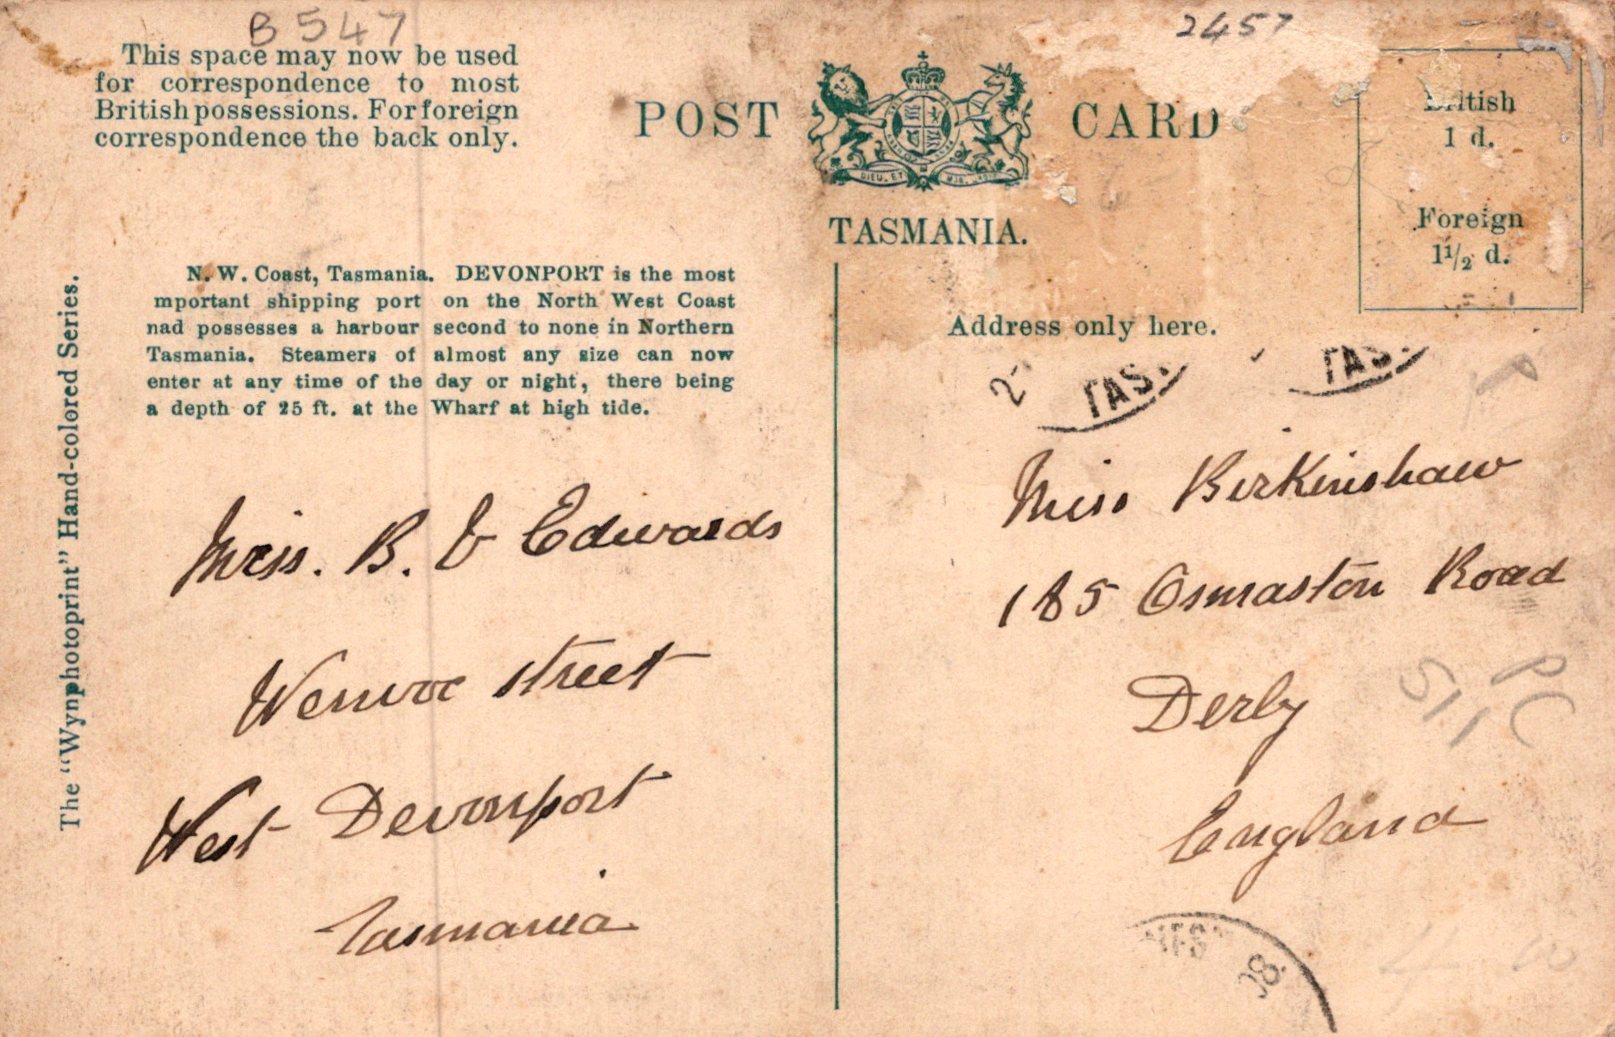 B 547
2457
This space may now be used
for correspondence to most
British possessions. For foreign
correspondence the back only.
POST CARD
DIEU ET MON DROIT
TASMANIA.
British
1 d.
Foreign
1 1/2 d.
The "Wynphotoprint" Hand-colored Series.
N. W. Coast, Tasmania. DEVONPORT is the most
mportant shipping port on the North West Coast
nad possesses a harbour second to none in Northern
Tasmania. Steamers of almost any size can now
enter at any time of the day or night, there being
a depth of 25 ft. at the Wharf at high tide.
Address only here.
TAS.
TAS.
Miss. B. J Edwards
Wenvoe street
West Devonport
Tasmania
Miss Birkinshaw
185 Osmaston Road
Derby
England
PC
5/-